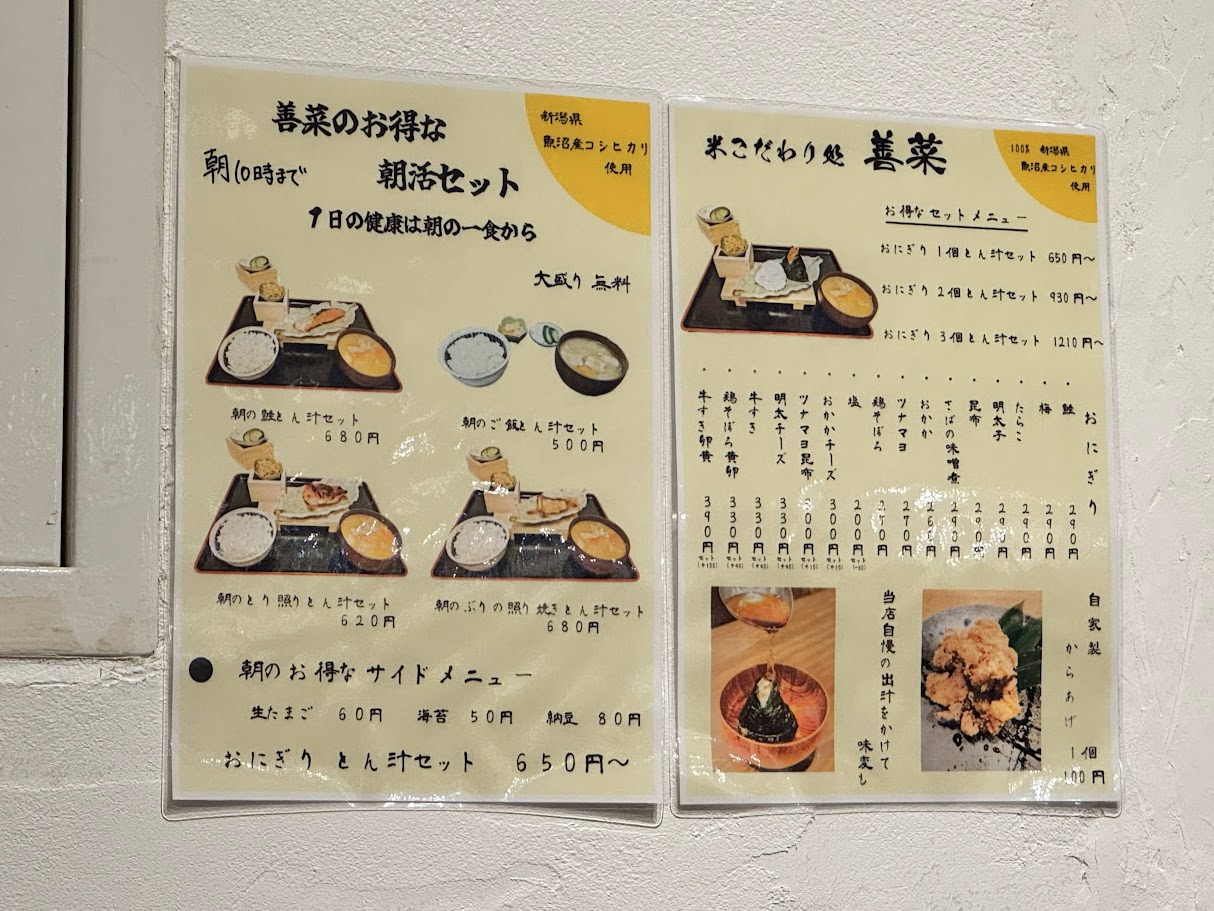 善菜のお得な
朝10時まで 朝活セット
1日の健康は朝の一食から
新潟県
魚沼産コシヒカリ
使用
大盛り 無料
朝の鮭とん汁セット
680円
朝のご飯とん汁セット
500円
朝のとり照りとん汁セット
620円
朝のぶりの照り焼きとん汁セット
680円
朝のお得なサイドメニュー
生たまご 60円 海苔 50円 納豆 80円
おにぎり とん汁セット 650円〜
米こだわり処 善菜
100% 新潟県
魚沼産コシヒカリ
使用
お得なセットメニュー
おにぎり 1個とん汁セット 650円〜
おにぎり 2個とん汁セット 930円〜
おにぎり 3個とん汁セット 1210円〜
おにぎり
・鮭 290円
・梅 290円
・たらこ 290円
・明太子 290円
・昆布 290円
・さばの味噌煮 290円
・おかか 260円
・ツナマヨ 270円
・鶏そぼろ 270円
・塩 200円 セット(-50)
・おかかチーズ 300円 セット(+10)
・ツナマヨ昆布 300円 セット(+10)
・明太チーズ 330円 セット(+40)
・牛すき 330円 セット(+40)
・鶏そぼろ黄卵 330円 セット(+40)
・牛すき卵黄 390円 セット(+100)
自家製
からあげ
1個
100円
当店自慢の出汁をかけて
味変も